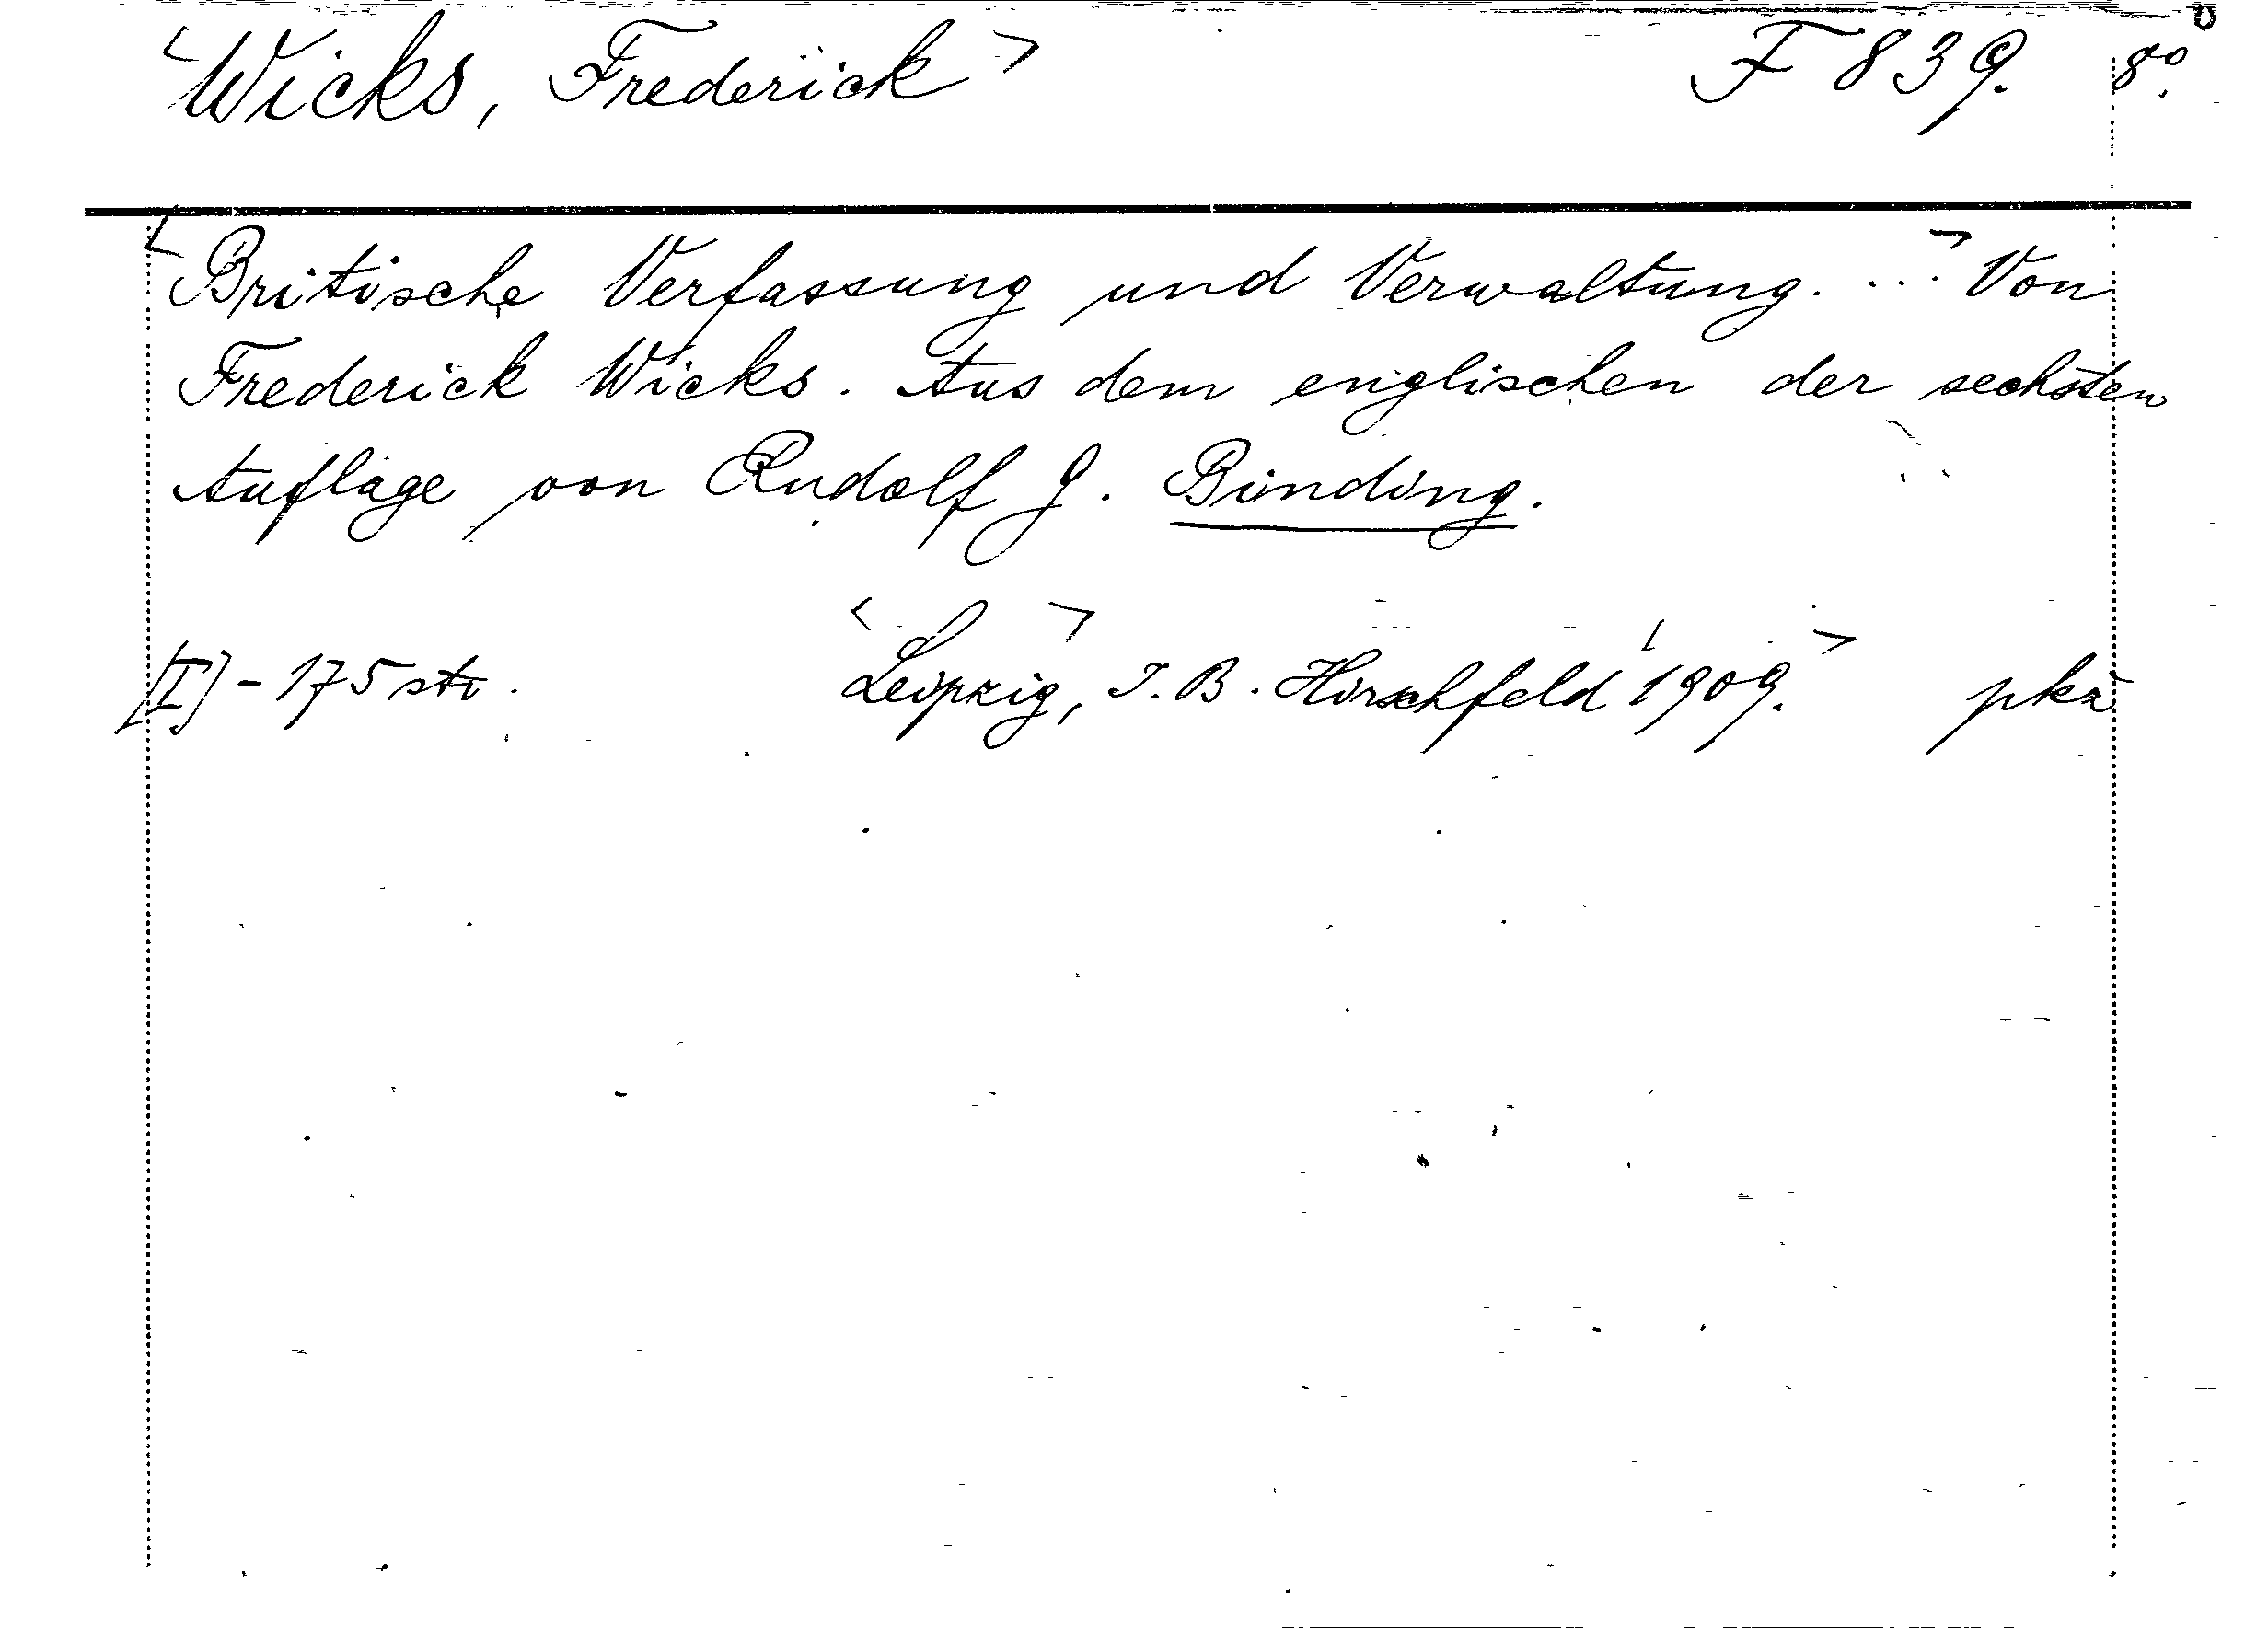 <Wicks, Frederick> F 839. 8°.
<Britische Verfassung und Verwaltung. ...> Von
Frederick Wicks. Aus dem englischen der sechsten
Auflage von Rudolf G. Binding.
[I]-175 str. <Leipzig>, J. B. Hirschfeld <1909.> pkr